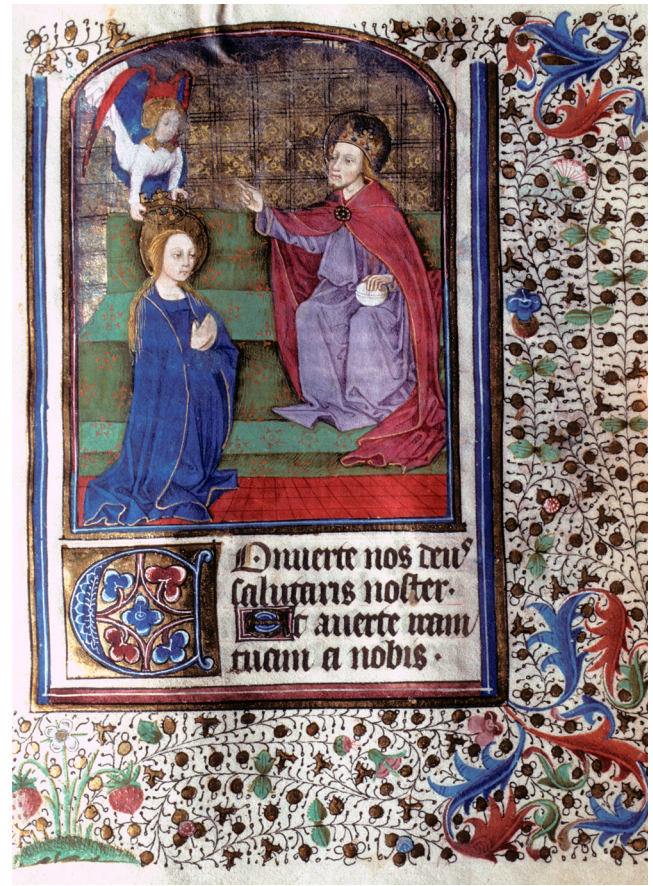 Conuerte nos deus
salutaris noster.
Et auerte iram
tuam a nobis.